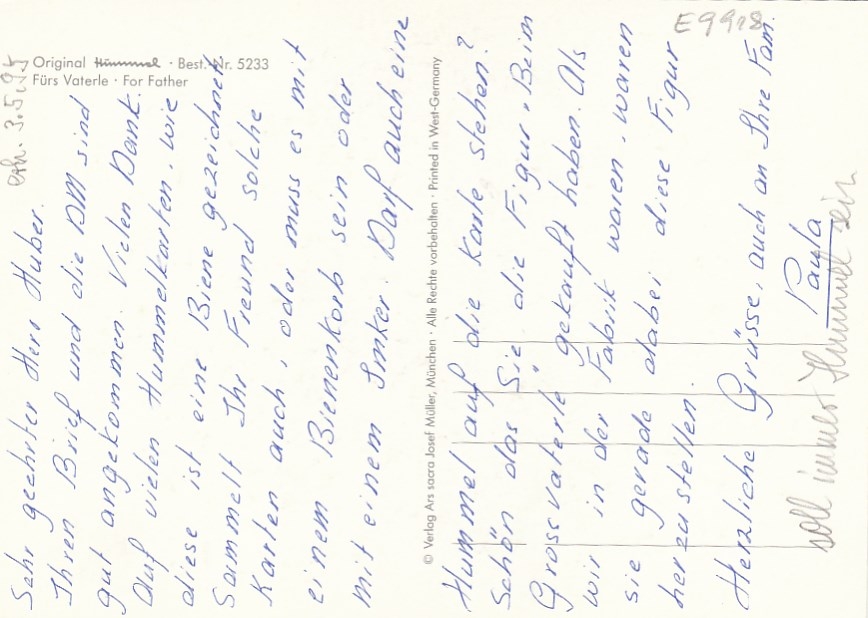 Original Hummel · Best. Nr. 5233
Fürs Vaterle · For Father
erh. 3.5.95
E9918
Sehr geehrter Herr Huber.
Ihren Brief und die DM sind
gut angekommen. Vielen Dank.
Auf vielen Hummelkarten, wie
diese ist eine Biene gezeichnet
Sammelt Ihr Freund solche
Karten auch, oder muss es mit
einem Bienenkorb sein oder
mit einem Imker. Darf auch eine
© Verlag Ars sacra Josef Müller, München · Alle Rechte vorbehalten · Printed in West-Germany
Hummel auf die Karte stehen?
Schön das Sie die Figur "Beim
Grossvaterle" gekauft haben. Als
wir in der Fabrik waren, waren
sie gerade dabei diese Figur
herzustellen.
Herzliche Grüsse, auch an Ihre Fam.
Paula
soll immer Hummel sein